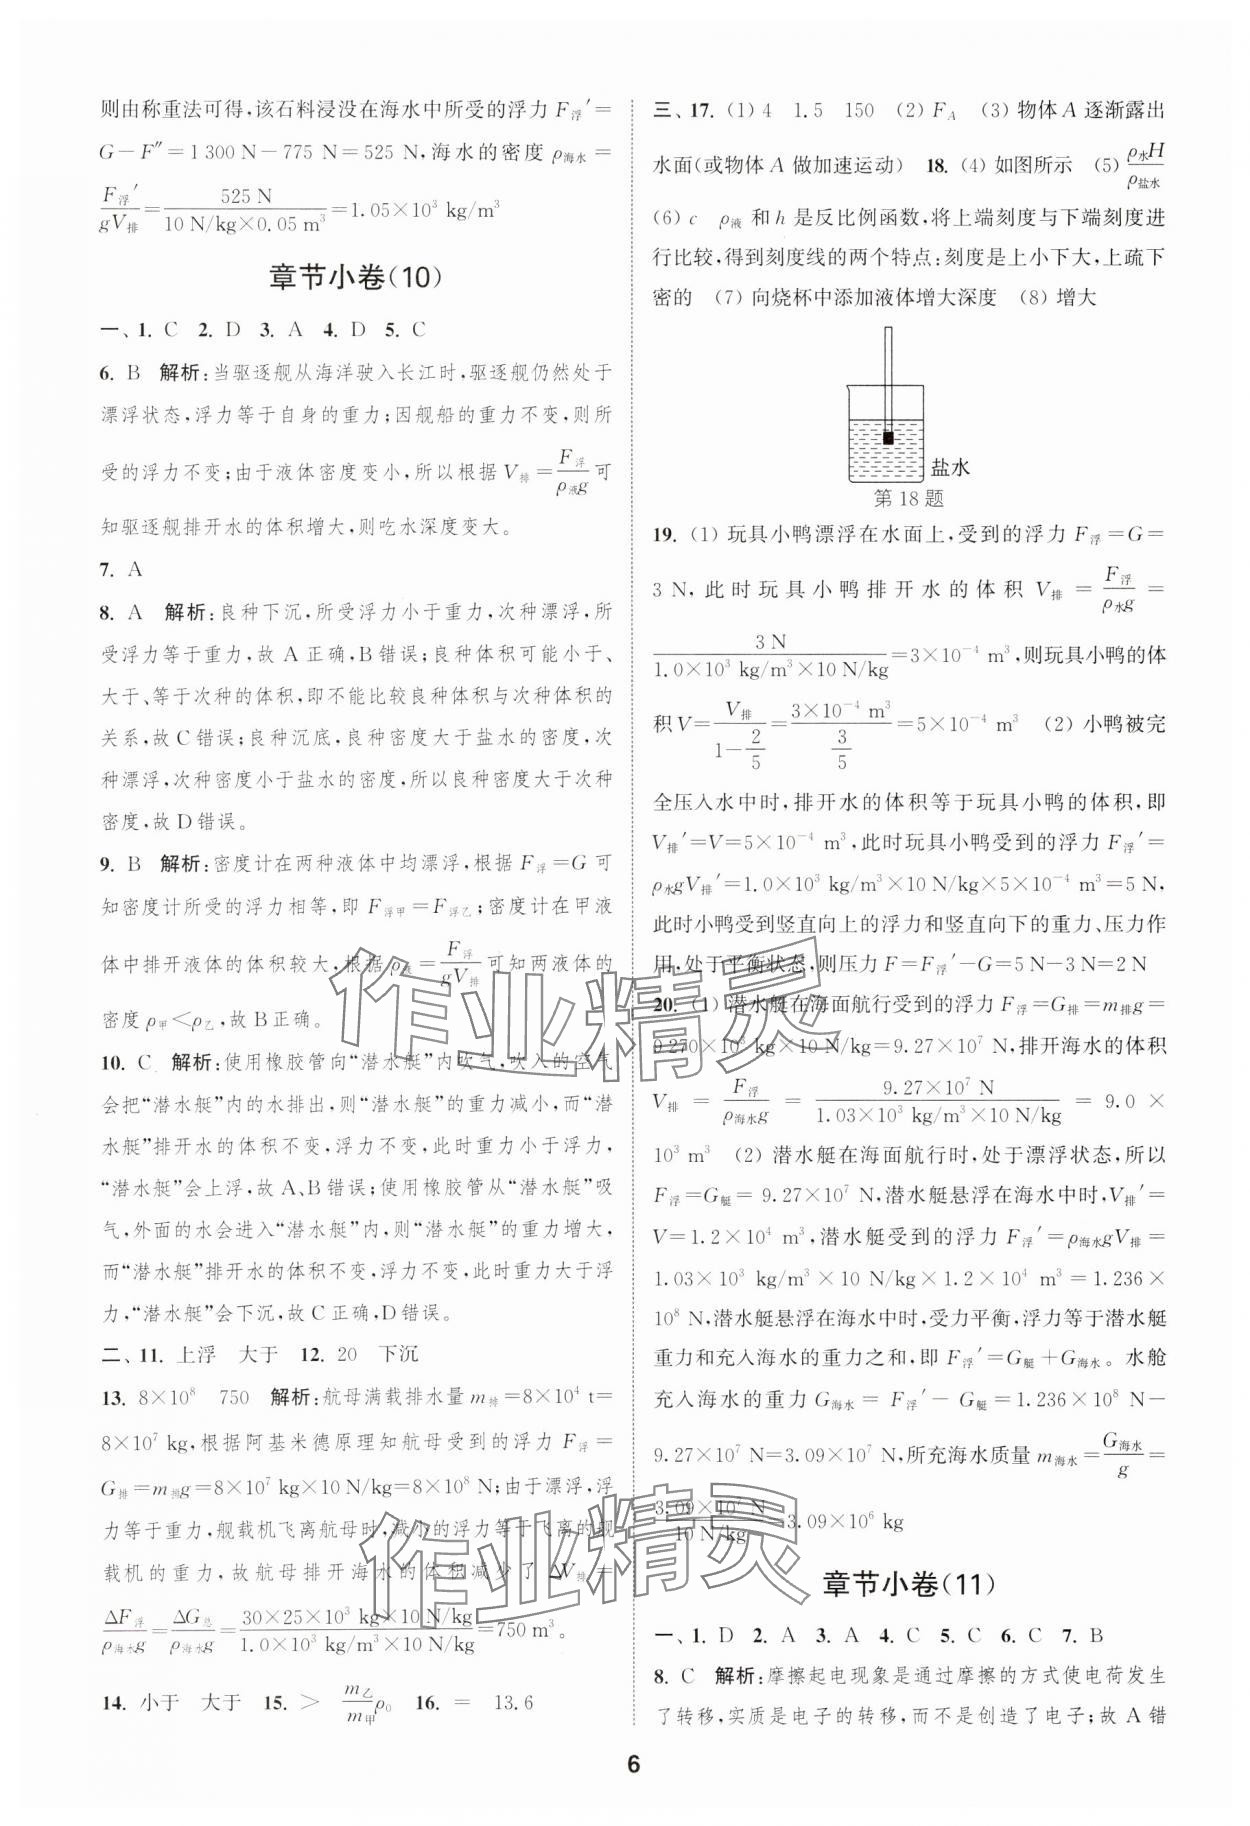 则由称重法可得,该石料浸没在海水中所受的浮力 F浮′=
G−F″=1 300 N−775 N=525 N,海水的密度 ρ海水=
F浮′/gV排=525 N/(10 N/kg×0.05 m³)=1.05×10³ kg/m³
章节小卷(10)
一、1. C 2. D 3. A 4. D 5. C
6. B 解析:当驱逐舰从海洋驶入长江时,驱逐舰仍然处于
漂浮状态,浮力等于自身的重力;因舰船的重力不变,则所
受的浮力不变;由于液体密度变小,所以根据 V排=F浮/ρ液g 可
知驱逐舰排开水的体积增大,则吃水深度变大。
7. A
8. A 解析:良种下沉,所受浮力小于重力,次种漂浮,所
受浮力等于重力,故 A 正确,B 错误;良种体积可能小于、
大于、等于次种的体积,即不能比较良种体积与次种体积的
关系,故 C 错误;良种沉底,良种密度大于盐水的密度,次
种漂浮,次种密度小于盐水的密度,所以良种密度大于次种
密度,故 D 错误。
9. B 解析:密度计在两种液体中均漂浮,根据 F浮=G 可
知密度计所受的浮力相等,即 F浮甲=F浮乙;密度计在甲液
体中排开液体的体积较大,根据 ρ液=F浮/gV排 可知两液体的
密度 ρ甲<ρ乙,故 B 正确。
10. C 解析:使用橡胶管向“潜水艇”内吹气,吹入的空气
会把“潜水艇”内的水排出,则“潜水艇”的重力减小,而“潜
水艇”排开水的体积不变,浮力不变,此时重力小于浮力,
“潜水艇”会上浮,故 A、B 错误;使用橡胶管从“潜水艇”吸
气,外面的水会进入“潜水艇”内,则“潜水艇”的重力增大,
而“潜水艇”排开水的体积不变,浮力不变,此时重力大于浮
力,“潜水艇”会下沉,故 C 正确,D 错误。
二、11. 上浮 大于 12. 20 下沉
13. 8×10⁸ 750 解析:航母满载排水量 m排=8×10⁴ t=
8×10⁷ kg,根据阿基米德原理知航母受到的浮力 F浮=
G排=m排g=8×10⁷ kg×10 N/kg=8×10⁸ N;由于漂浮,浮
力等于重力,舰载机飞离航母时,减小的浮力等于飞离的舰
载机的重力,故航母排开海水的体积减少了 ΔV排=
ΔF浮/ρ海水g=ΔG总/ρ海水g=(30×25×10³ kg×10 N/kg)/(1.0×10³ kg/m³×10 N/kg)=750 m³。
14. 小于 大于 15. > m乙/m甲 ρ₀ 16. = 13.6
三、17. (1) 4 1.5 150 (2) F_A (3) 物体 A 逐渐露出
水面(或物体 A 做加速运动) 18. (4) 如图所示 (5) ρ水H/ρ盐水
(6) c ρ液 和 h 是反比例函数,将上端刻度与下端刻度进
行比较,得到刻度线的两个特点:刻度是上小下大,上疏下
密的 (7) 向烧杯中添加液体增大深度 (8) 增大
盐水
第 18 题
19. (1) 玩具小鸭漂浮在水面上,受到的浮力 F浮=G=
3 N,此时玩具小鸭排开水的体积 V排=F浮/ρ水g=
3 N/(1.0×10³ kg/m³×10 N/kg)=3×10⁻⁴ m³,则玩具小鸭的体
积 V=V排/(1−2/5)=3×10⁻⁴ m³/(3/5)=5×10⁻⁴ m³ (2) 小鸭被完
全压入水中时,排开水的体积等于玩具小鸭的体积,即
V排′=V=5×10⁻⁴ m³,此时玩具小鸭受到的浮力 F浮′=
ρ水gV排′=1.0×10³ kg/m³×10 N/kg×5×10⁻⁴ m³=5 N,
此时小鸭受到竖直向上的浮力和竖直向下的重力、压力作
用,处于平衡状态,则压力 F=F浮′−G=5 N−3 N=2 N
20. (1) 潜水艇在海面航行受到的浮力 F浮=G排=m排g=
9.270×10³ kg×10 N/kg=9.27×10⁷ N,排开海水的体积
V排=F浮/ρ海水g=9.27×10⁷ N/(1.03×10³ kg/m³×10 N/kg)=9.0×
10³ m³ (2) 潜水艇在海面航行时,处于漂浮状态,所以
F浮=G艇=9.27×10⁷ N,潜水艇悬浮在海水中时,V排′=
V=1.2×10⁴ m³,潜水艇受到的浮力 F浮′=ρ海水gV排=
1.03×10³ kg/m³×10 N/kg×1.2×10⁴ m³=1.236×
10⁸ N,潜水艇悬浮在海水中时,受力平衡,浮力等于潜水艇
重力和充入海水的重力之和,即 F浮′=G艇+G海水。水舱
充入海水的重力 G海水=F浮′−G艇=1.236×10⁸ N−
9.27×10⁷ N=3.09×10⁷ N,所充海水质量 m海水=G海水/g=
3.09×10⁷ N/10 N/kg=3.09×10⁶ kg
章节小卷(11)
一、1. D 2. A 3. A 4. C 5. C 6. C 7. B
8. C 解析:摩擦起电现象是通过摩擦的方式使电荷发生
了转移,实质是电子的转移,而不是创造了电子;故 A 错
6
作业精灵
作业精灵